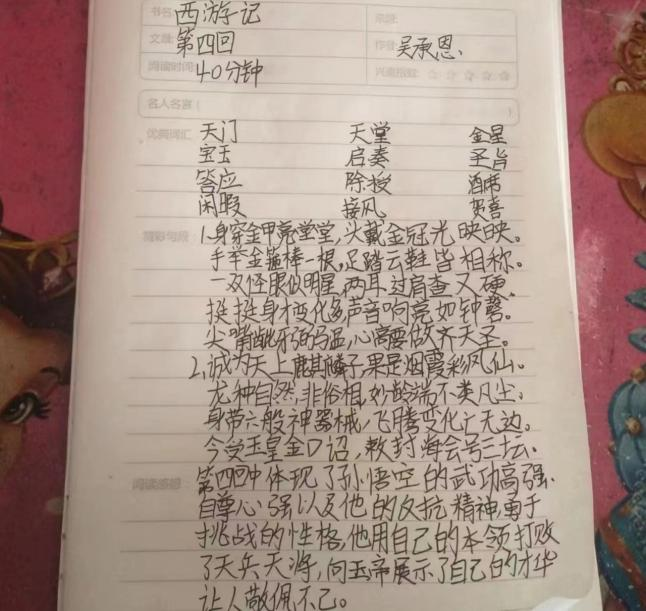 书名: 西游记
文题: 第四回 作者: 吴承恩.
阅读时间: 40分钟 兴趣指数: ☆☆☆☆☆
名人名言(
优美词汇 天门 天堂 金星
宝玉 启奏 圣旨
答应 除授 酒席
闲暇 接风 贺喜
精彩句段: 1.身穿金甲亮堂堂,头戴金冠光映映。
手举金箍棒一根,足踏云鞋皆相称。
一双怪眼似明星,两耳过肩查又硬.
挺挺身材变化多,声音响亮如钟磬。
尖嘴龇牙弼马温,心高要做齐天圣。
2,诚为天上麒麟子,果是烟霞彩凤仙。
龙种自然,非俗相,妙龄端不类凡尘。
身带六般神器械,飞腾变化广无边。
今受玉皇金口诏,敕封海会号三坛.
阅读感想: 第四回中体现了孙悟空的武功高强.
自尊心强以及他的反抗精神,勇于
挑战的性格,他用自己的本领打败
了天兵天将,向玉帝展示了自己的才华
让人敬佩不已。